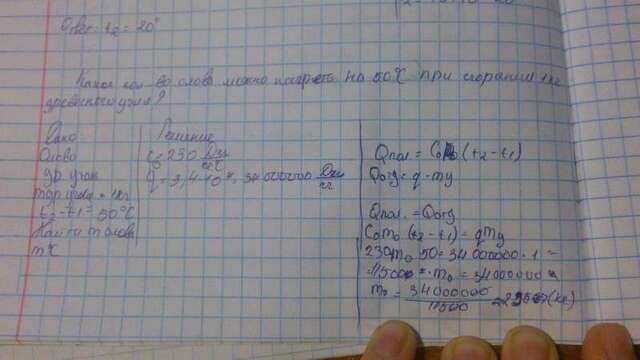 Ответ t₂ = 20°
Какое кол во олова можно нагреть на 50°С при сгорании 1кг
древесного угля?
Дано
Решение
Олово
c = 230 Дж/кг°С
др. угля
q = 3,4·10⁷ = 34 000000 Дж/кг
t₂ - t₁ = 50°С
Найти m олова
m -
Qпол = C₀m₀ (t₂ - t₁)
Qотд = q · mу
Qпол. = Qотд
C₀m₀ (t₂ - t₁) = qmу
230m₀ 50 = 34 000000 · 1
11500 · m₀ = 34000000
m₀ = 34000000 / 11500
(кг)